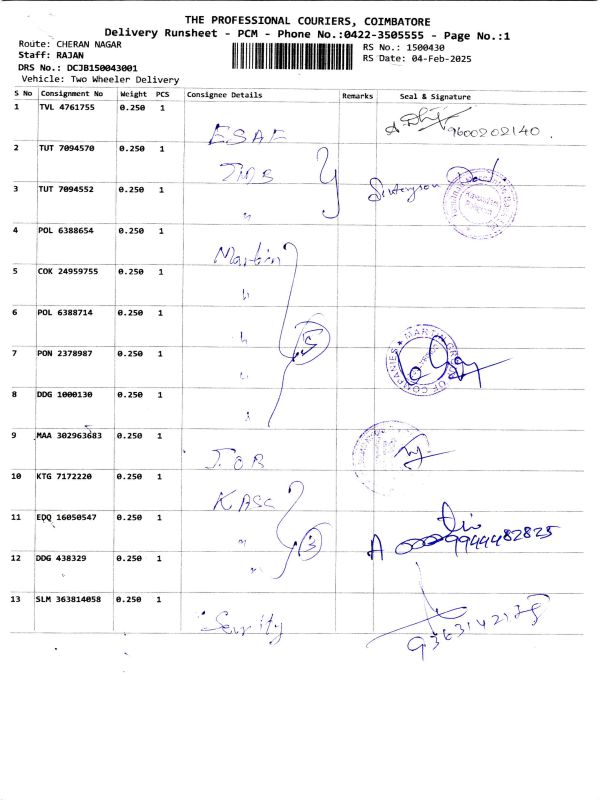 THE PROFESSIONAL COURIERS, COIMBATORE
Delivery Runsheet - PCM - Phone No.:0422-3505555 - Page No.:1
Route: CHERAN NAGAR
RS No.: 1500430
Staff: RAJAN
RS Date: 04-Feb-2025
DRS No.: DCJB150043001
Vehicle: Two Wheeler Delivery
S No Consignment No Weight PCS Consignee Details Remarks Seal & Signature
1 TVL 4761755 0.250 1 ESAF 9600202140
2 TUT 7094570 0.250 1 TMB
3 TUT 7094552 0.250 1 "
4 POL 6388654 0.250 1 Martin
5 COK 24959755 0.250 1 "
6 POL 6388714 0.250 1 " 5
7 PON 2378987 0.250 1 " MARTIN GROUP OF COMPANIES
8 DDG 1000130 0.250 1 "
9 MAA 302963683 0.250 1 I.O.B
10 KTG 7172220 0.250 1
11 EDQ 16050547 0.250 1 " 9944482825
12 DDG 438329 0.250 1 " 3
13 SLM 363814058 0.250 1